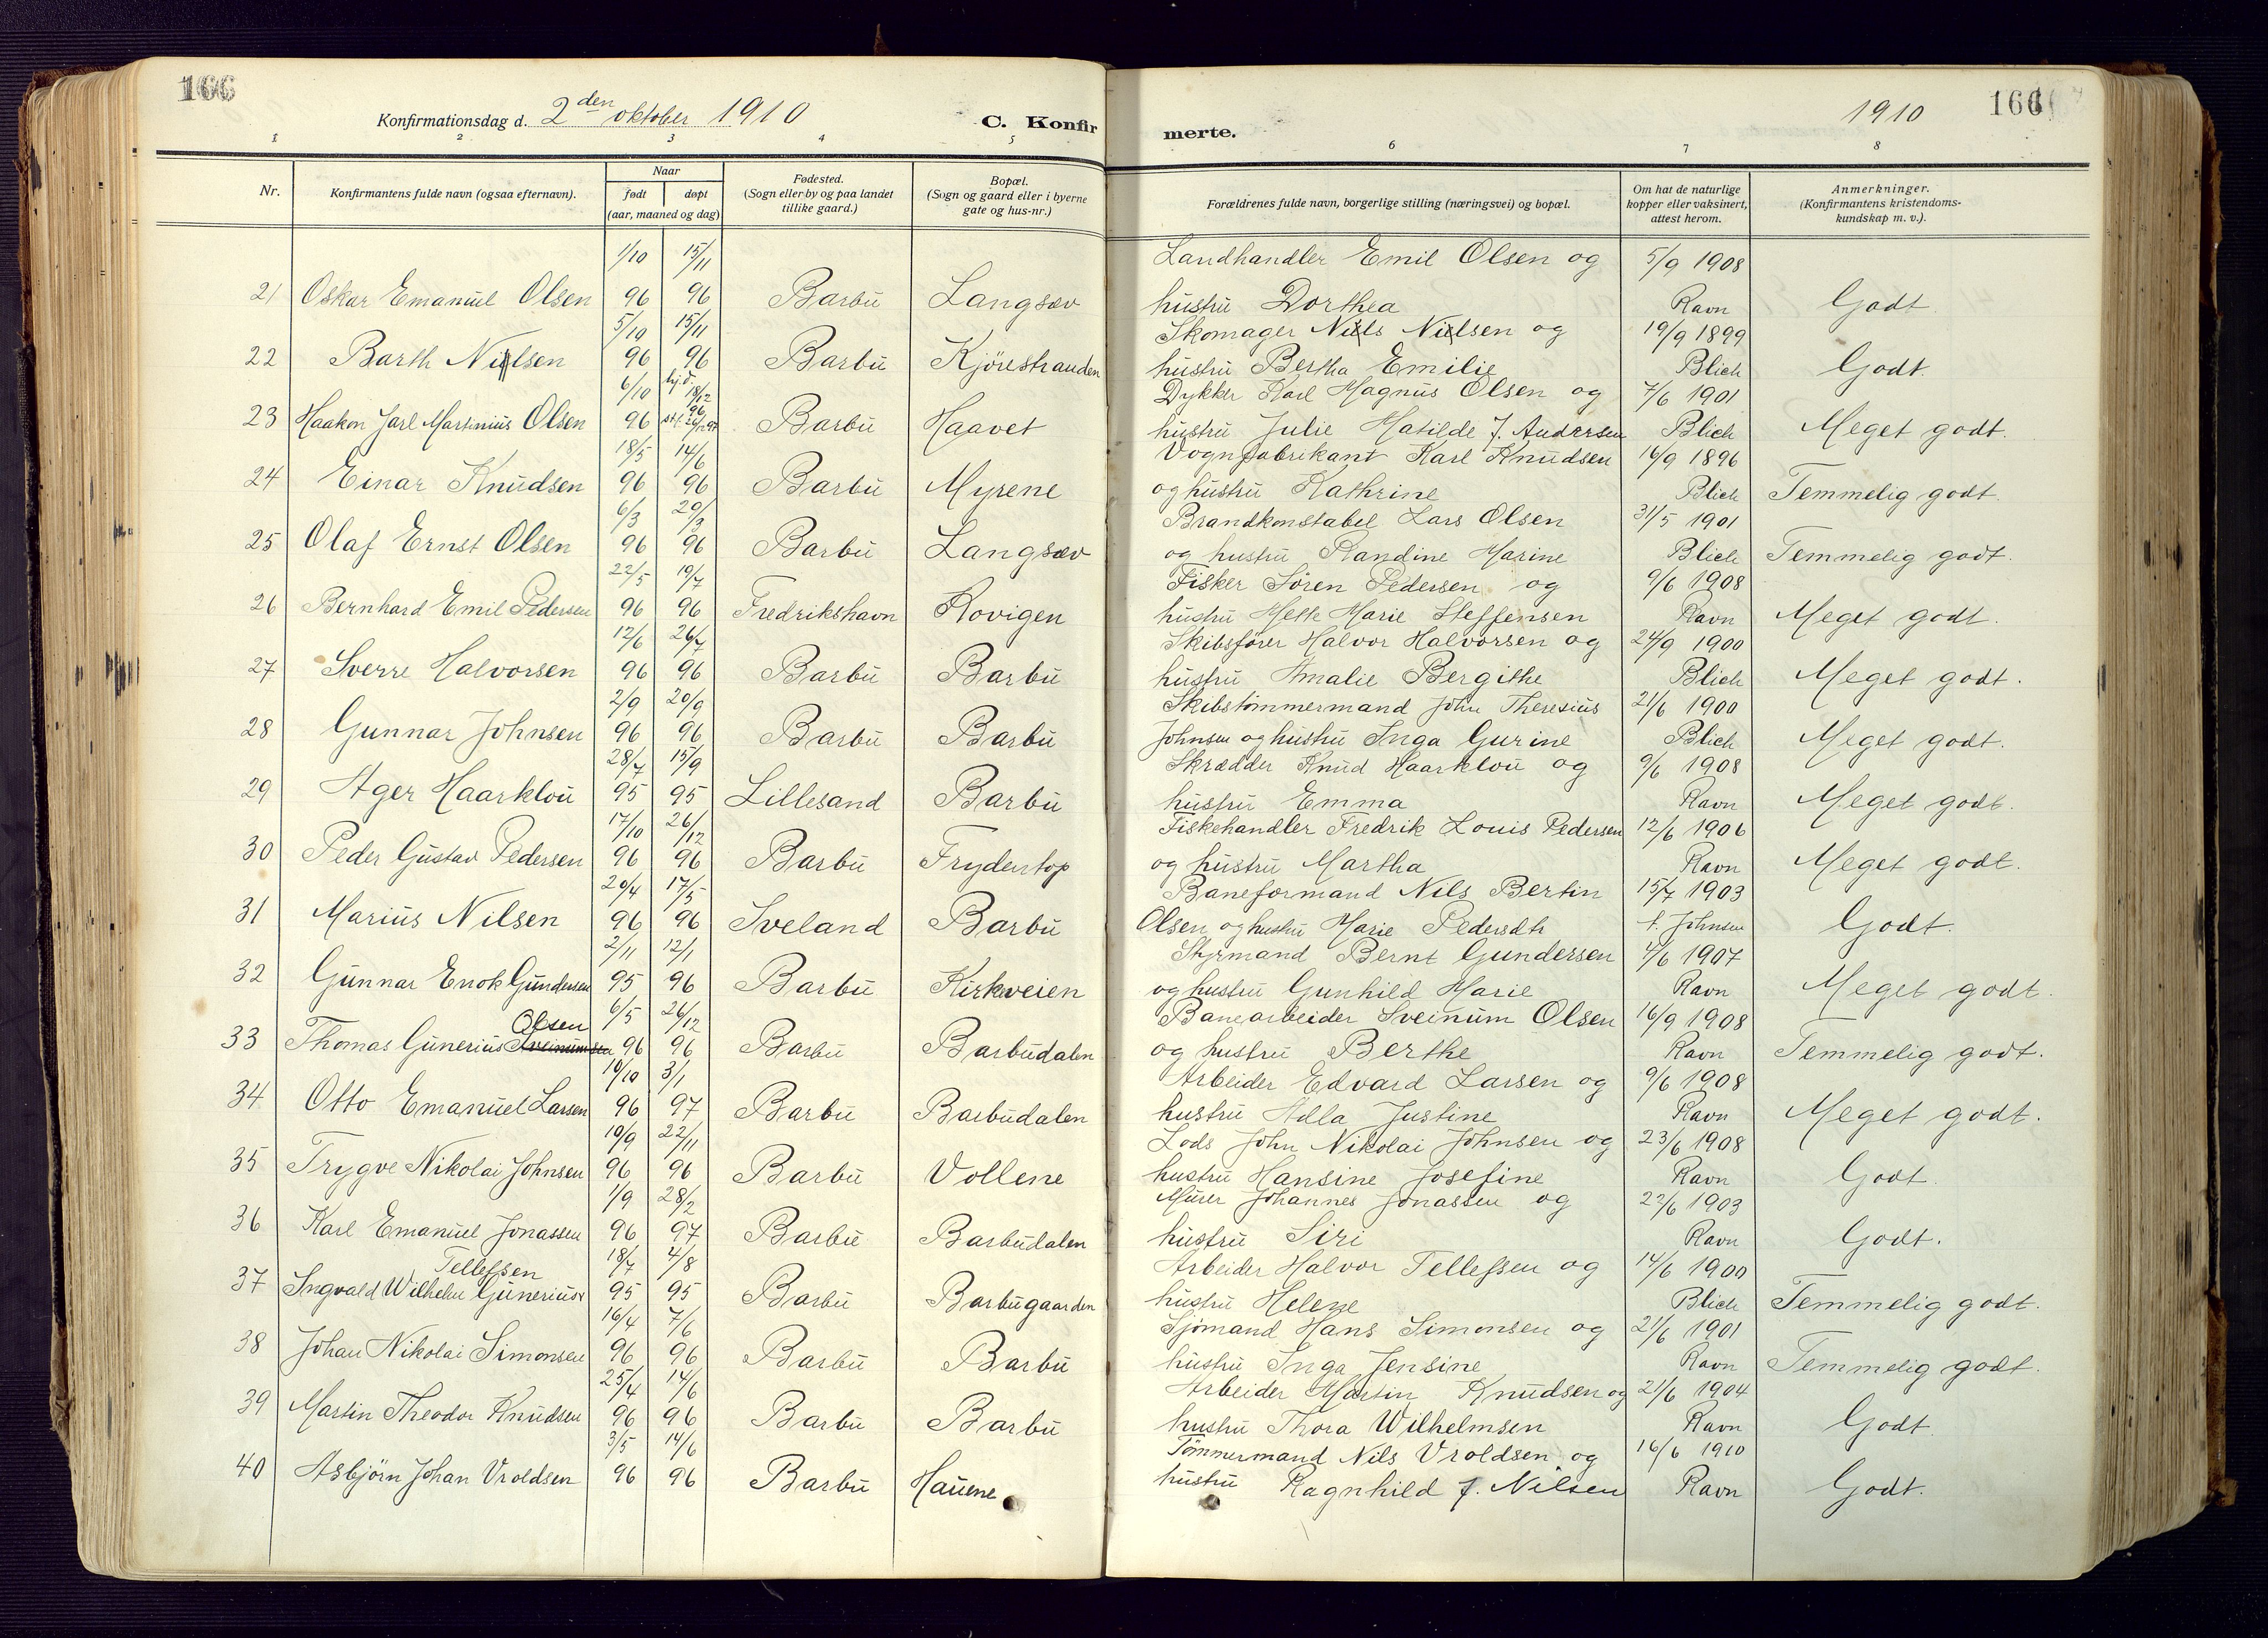 166
Konfirmationsdag d. 2den oktober 1910
C. Konfir
merte.
1910
166
1 2 3 4 5 6 7 8
Nr.
Konfirmantens fulde navn (ogsaa efternavn).
Naar
født døpt
(aar, maaned og dag)
Fødested.
(Sogn eller by og paa landet
tillike gaard.)
Bopæl.
(Sogn og gaard eller i byerne
gate og hus-nr.)
Forældrenes fulde navn, borgerlige stilling (næringsvei) og bopæl.
Om hat de naturlige
kopper eller vaksinert,
attest herom.
Anmerkninger.
(Konfirmantens kristendoms-
kundskap m. v.).
1/10 15/11 Landhandler Emil Olsen og 5/9 1908
21 Oskar Emanuel Olsen 96 96 Barbu Langsæv hustru Dorthea Ravn Godt
5/10 15/11 Skomager Nils Nilsen og 19/9 1899
22 Barth Nilsen 96 96 Barbu Kjörestranden hustru Bertha Emilie Blich Godt.
6/10 hj.d. 18/12 96 Dykker Karl Magnus Olsen og 7/6 1901
23 Haakon Jarl Martinius Olsen 96 Barbu Haavet hustru Julie Matilde f. Andersen Blich Meget godt.
18/5 14/6 Vognfabrikant Karl Knudsen 16/9 1896
24 Einar Knudsen 96 96 Barbu Myrene og hustru Kathrine Blich Temmelig godt.
6/3 29/3 Brandkonstabel Lars Olsen 31/5 1901
25 Olaf Ernst Olsen 96 96 Barbu Langsæv og hustru Randine Marine Blich Temmelig godt.
22/5 19/7 Fisker Sören Pedersen og 9/6 1908
26 Bernhard Emil Pedersen 96 96 Fredrikshavn Rovigen hustru Mette Marie Steffensen Ravn Meget godt.
12/6 26/7 Skibsfører Halvor Halvorsen og 24/9 1900
27 Sverre Halvorsen 96 96 Barbu Barbu hustru Amalie Bergithe Blich Meget godt.
2/9 20/9 Skibstömmermand John Theresius 21/6 1900
28 Gunnar Johnsen 96 96 Barbu Barbu Johnsen og hustru Inga Gurine Blich Meget godt.
28/7 15/9 Skrædder Knud Haarklou og 9/6 1908
29 Ager Haarklou 95 95 Lillesand Barbu hustru Emma Ravn Meget godt.
17/10 26/12 Fiskehandler Fredrik Louis Pedersen 12/6 1906
30 Peder Gustav Pedersen 96 96 Barbu Frydentop og hustru Martha Ravn Meget godt.
20/4 17/5 Baneformand Nils Bertin 15/7 1903
31 Marius Nilsen 96 96 Iveland Barbu Olsen og hustru Marie Pedersdtr Johnsen Godt.
2/11 12/1 Styrmand Bernt Gundersen 4/6 1907
32 Gunnar Enok Gundersen 95 96 Barbu Kirkveien og hustru Gunhild Marie Ravn Meget godt.
Olsen 6/5 26/12 Banearbeider Sveinum Olsen 16/9 1908
33 Thomas Gunerius Sveinumsen 96 96 Barbu Barbudalen og hustru Berthe Ravn Temmelig godt.
10/10 3/1 Arbeider Edvard Larsen og 9/6 1908
34 Otto Emanuel Larsen 96 97 Barbu Barbudalen hustru Adla Justine Ravn Meget godt.
10/9 22/11 Lods John Nikolai Johnsen og 23/6 1908
35 Trygve Nikolai Johnsen 96 96 Barbu Vollene hustru Hansine Josefine Ravn Godt.
1/9 28/2 Murer Johannes Jonassen og 22/6 1903
36 Karl Emanuel Jonassen 96 97 Barbu Barbudalen hustru Siri Ravn Godt.
Tellefsen 18/7 4/8 Arbeider Halvor Tellefsen og 14/6 1900
37 Ingvald Wilhelm Gunerius 95 95 Barbu Barbugaarden hustru Helene Blich Temmelig godt.
16/4 7/6 Sjömand Hans Simonsen og 21/6 1901
38 Johan Nikolai Simonsen 96 96 Barbu Barbu hustru Inga Jensine Ravn Temmelig godt.
25/4 14/6 Arbeider Martin Knudsen og 21/6 1904
39 Martin Theodor Knudsen 96 96 Barbu Barbu hustru Thora Wilhelmsen Ravn Godt
3/5 14/6 Tömmermand Nils Vroldsen og 16/6 1910
40 Asbjörn Johan Vroldsen 96 96 Barbu Hauene hustru Ragnhild f. Nilsen Ravn Godt.